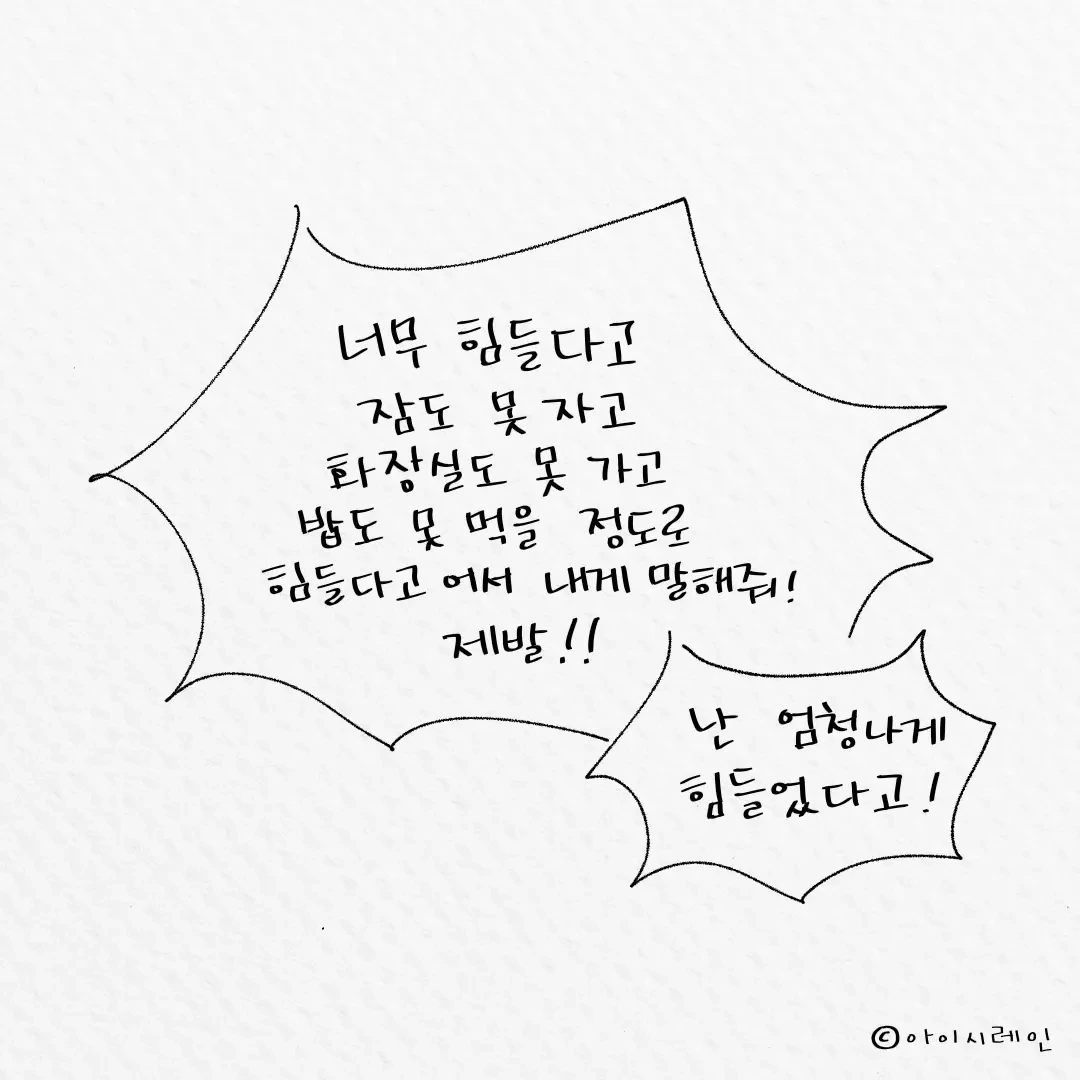 너무 힘들다고
잠도 못 자고
화장실도 못 가고
밥도 못 먹을 정도로
힘들다고 어서 내게 말해줘!
제발!!
난 엄청나게
힘들었다고!
©아이시레인